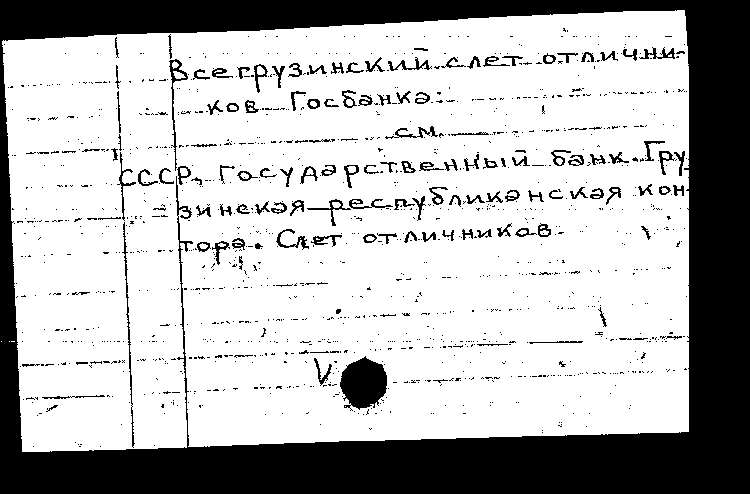 Всегрузинский слет отлични-
ков Госбанка:
см.
СССР, Государственный банк. Гру
= зинская республиканская кон-
тора. Слет отличников.
V